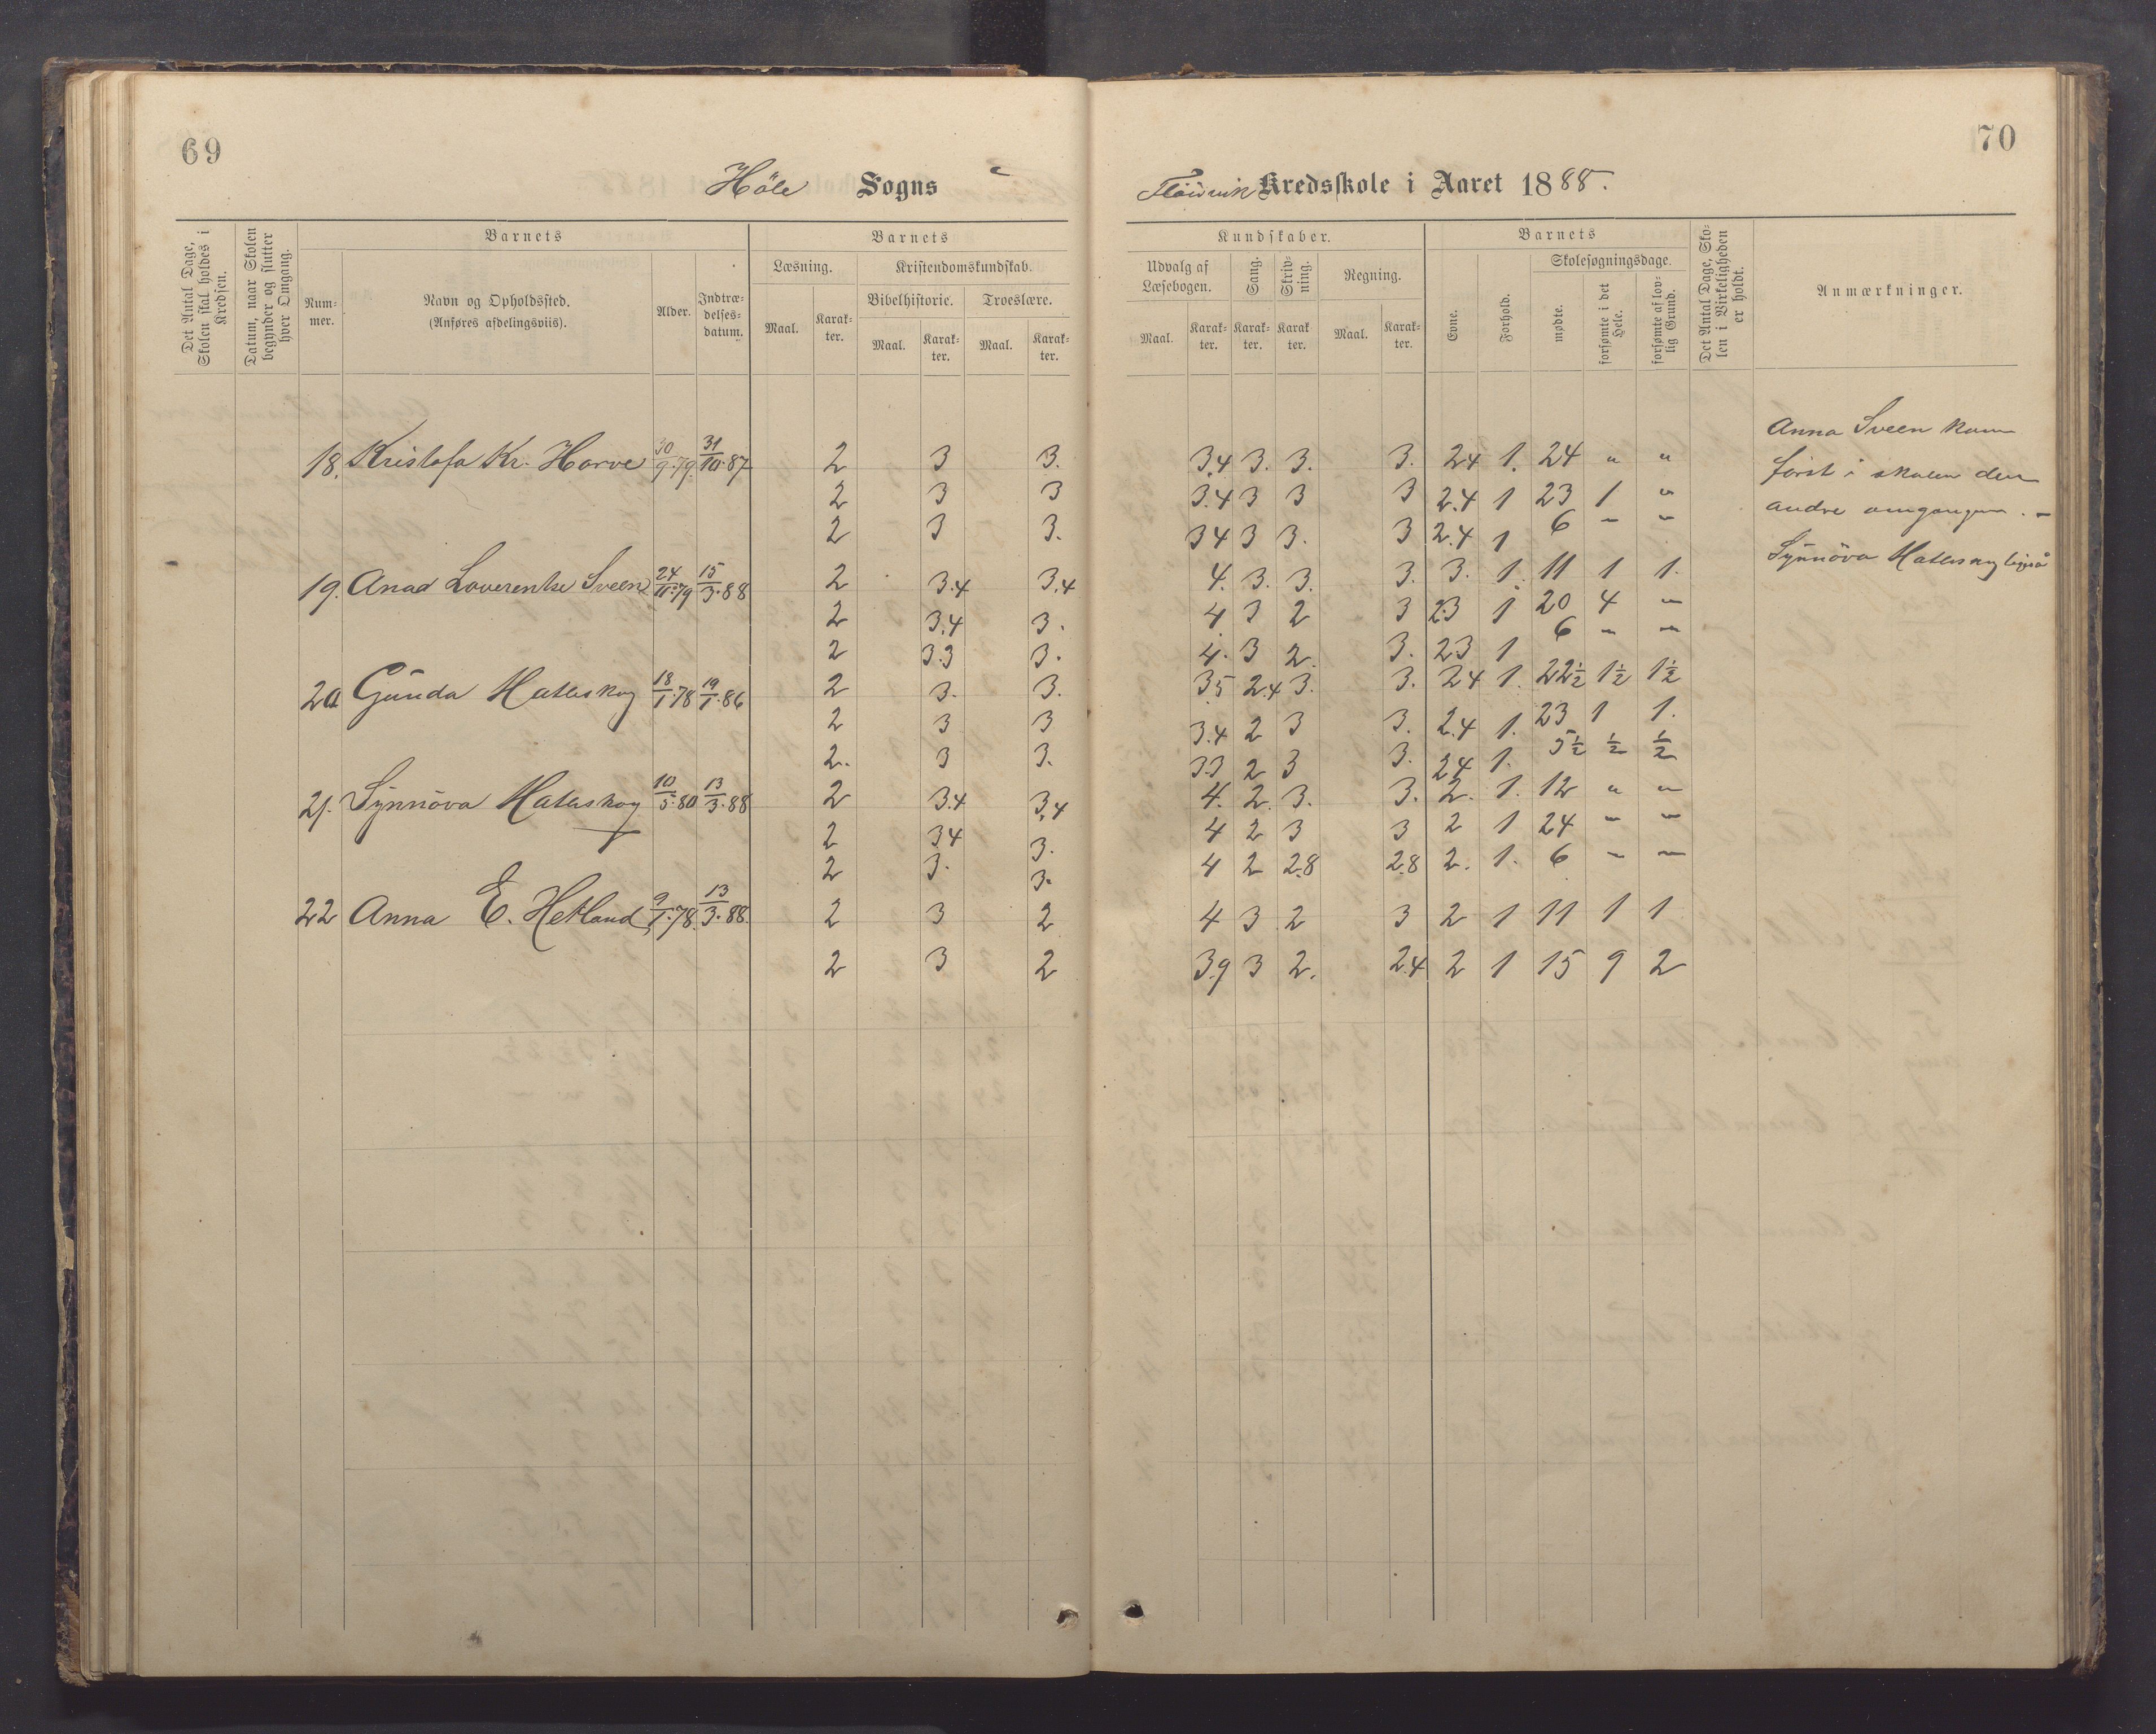 69
70
Höle Sogns
Flöirvik Kredsskole i Aaret 1888.
Det Antal Dage, Skolen skal holdes i Kredsen.
Datum, naar Skolen begynder og slutter hver Omgang.
Barnets
Nummer.
Navn og Opholdssted. (Anføres afdelingsviis).
Alder.
Indtrædelsesdatum.
Barnets
Læsning.
Maal.
Karakter.
Kristendomskundskab.
Bibelhistorie.
Maal.
Karakter.
Troeslære.
Maal.
Karakter.
Kundskaber.
Udvalg af Læsebogen.
Maal.
Karakter.
Sang.
Karakter.
Skrivning.
Karakter.
Regning.
Maal.
Karakter.
Barnets
Evne.
Forhold.
Skolesøgningsdage.
mødte.
forsømte i det Hele.
forsømte af lovlig Grund.
Det Antal Dage, Skolen i Virkeligheden er holdt.
Anmærkninger.
18. Kristofa Kr. Horve 30/9.79. 31/10.87 2 3 3. 3.4 3. 3. 3. 24 1. 24 " "
2 3 3 3.4 3 3 3 2.4 1 23 1 "
2 3 3. 34 3 3. 3 2.4 1 6 – –
19. Anad Loverentse Sveen 24/11.79 15/3.88 2 3.4 3.4 4. 3. 3. 3. 3. 1. 11 1 1.
2 3.4 3. 4 3 2 3 2.3 1 20 4 –
2 3.3 3. 4. 3 2. 3. 23 1 6 – –
20 Gunda Hatleskog 18/1.78 19/1.86 2 3. 3. 35 2.4 3. 3. 24 1. 22½ 1½ 1½
2 3 3 3.4 2 3 3. 2.4 1. 23 1 1.
2. 3 3. 33 2 3 3. 24 1. 5½ ½ ½
21. Synnöva Hatleskog 10/5.80 13/3.88 2 3.4 3.4 4. 2. 3. 3. 2. 1. 12 " "
2 34 3. 4 2 3 3 2 1 24 – –
2 3. 3. 4 2 2.8 2.8 2. 1. 6 – –
22 Anna E. Hetland 9/1.78. 13/3.88. 2 3 2 4 3 2 3 2 1 11 1 1
2 3 2 3.9 3 2. 2.4 2 1 15 9 2
Anna Sveen kom
först i skolen den
andre omgangen. –
Synnöva Hatleskog ligeså